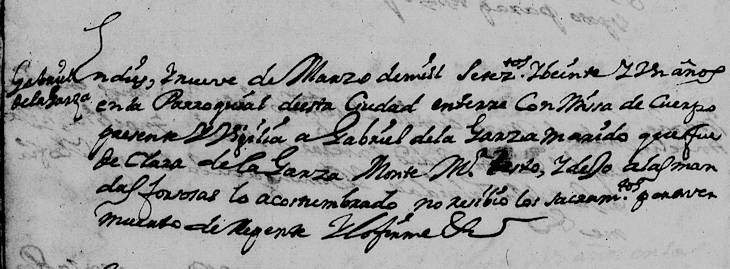 Gabriel
de la Garza
En dies, y nueve de Marzo de mill Setez.tos Y beinte Y Un años
en la Parroquial de esta Ciudad enterre Con Missa de Cuerpo
presente Y Vigilia a Gabriel de la Garza marido que fue
de Clara de la Garza Monte M.r testo, Y dejo a las man
das forsosas lo acostumbrado no resibio los sacram.tos por aver
muerto de Repente Y lo firme